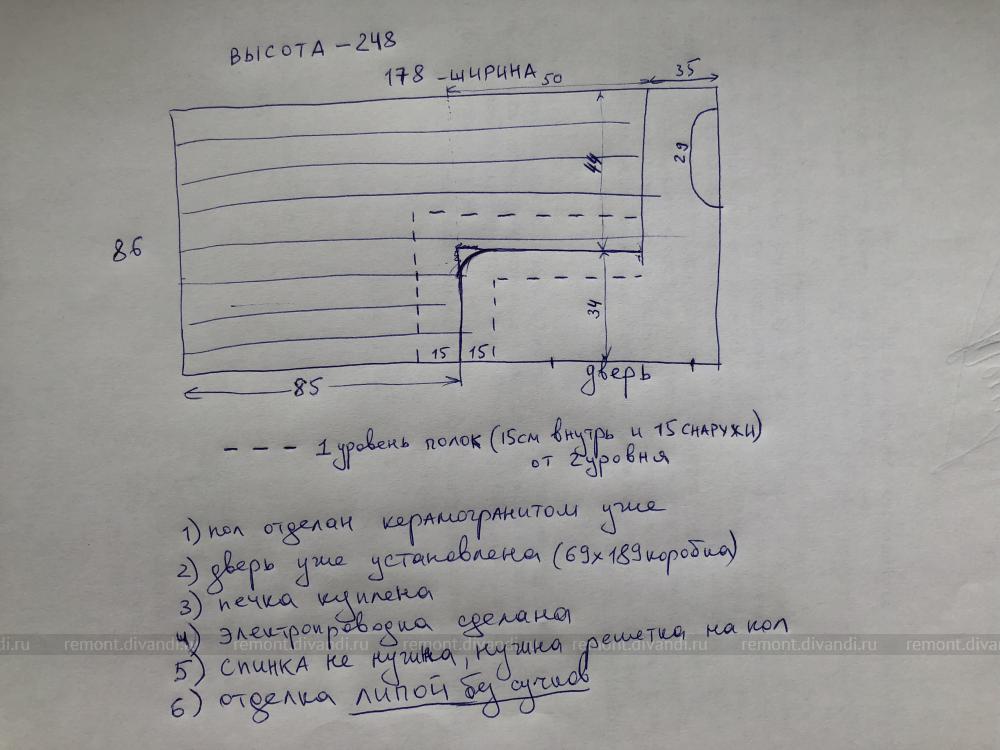 ВЫСОТА – 248
178 - ШИРИНА
50
35
44
29
86
34
15
15
дверь
85
1 уровень полок (15см внутрь и 15 СНАРУЖИ)
от 2 уровня
1) пол отделан керамогранитом уже
2) дверь уже установлена (69х189 коробка)
3) печка куплена
4) электропроводка сделана
5) спинка не нужна, нужна решетка на пол
6) отделка липой без сучков
di.ru remont.divandi.ru remont.divandi.ru remont.divandi.ru remont.divandi.ru remont.divandi.ru remont.divan